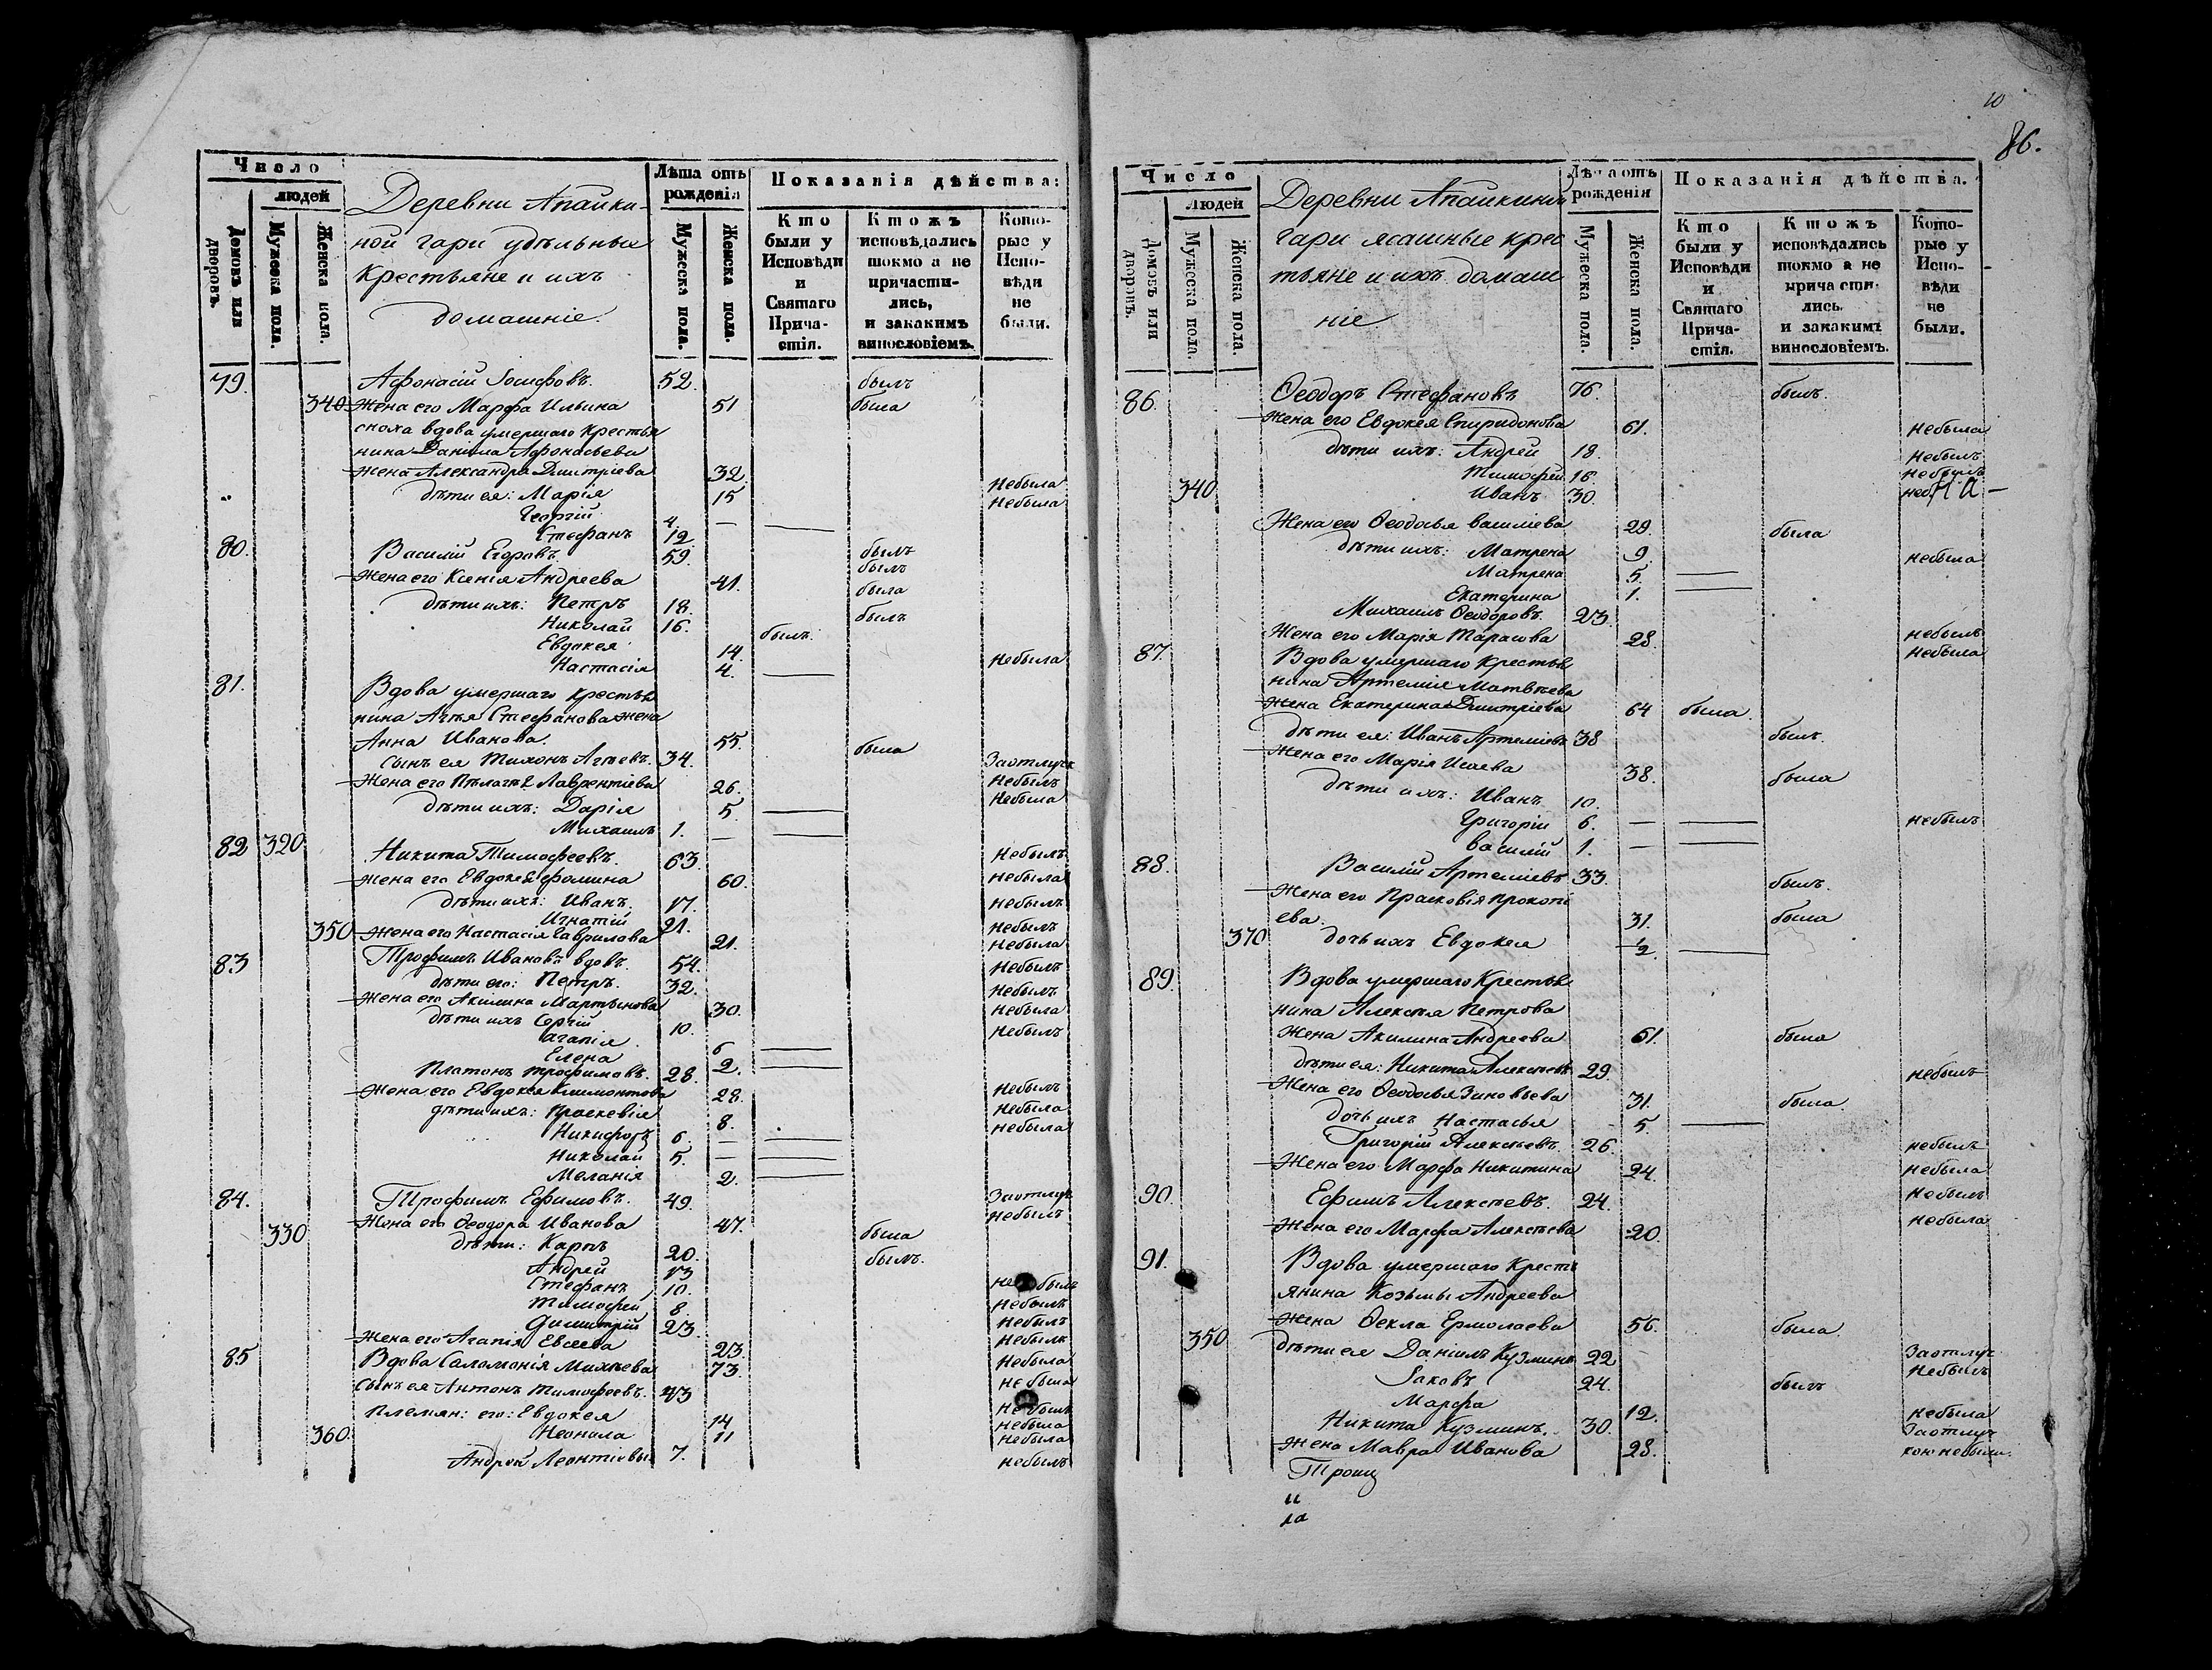 Число
людей
Домовъ или дворовъ.
Мужеска пола.
Женска пола.
Деревни Апайки-
ной гари удѣльные
крестьяне и ихъ
домашніе.
Лѣта отъ рожденія
Мужеска пола.
Женска пола.
Показанія дѣйства:
Кто были у Исповѣди и Святаго Прича-стія.
Ктожъ исповѣдались токмо а не причасти-лись, и закакимъ винословіемъ.
Кото-рые у Испо-вѣди не были.
79. Афонасій Іосифовъ. 52. былъ
340 Жена его Марфа Ильина 51 была
сноха вдова умершаго крестья
нина Данила Афонасьева
жена Александра Дмитріева 32. небыла
дѣти ея: Марія 15 небыла
Георгій 4. —
Стефанъ 12.
80. Василій Егоровъ. 59. былъ
былъ
Жена его Ксенія Андреева 41. была
дѣти ихъ: Петръ 18. былъ
Николай 16. былъ.
Евдокея 14. небыла
Настасія 4. —
81. Вдова умершаго крестья
нина Агѣя Стефанова жена
Анна Иванова. 55. была
Сынъ ея Тихонъ Агѣевъ. 34. Заотлучк
небылъ
Жена его Пелагѣя Лаврентіева 26. небыла
дѣти ихъ: Дарія 5. —
Михаилъ 1. —
82 320 Никита Тимофеевъ. 63. небылъ
Жена его Евдокея Фомина 60. небыла
дѣти ихъ: Иванъ. 17. небылъ
Игнатій 21. небылъ
350 Жена его Настасія Гаврилова 21. небыла
83 Трофимъ Ивановъ вдовъ. 54. небылъ
дѣти его: Петръ. 32. небылъ
Жена его Акилина Мартынова 30. небыла
дѣти ихъ Сергій 10. небылъ
Агапія 6 —
Елена 2. —
Платонъ Трофимовъ. 28. небылъ
Жена его Евдокея Климонтова 28. небыла
дѣти ихъ: Праскевія 8. небыла
Никифоръ 6. —
Николай 5. —
Меланія 2. —
84. Трофимъ Ефимовъ. 49. Заотлуч
небылъ
330 Жена его Ѳеодора Иванова 47. была
дѣти: Карпъ 20. былъ.
Андрей 13 небылъ
Стефанъ 10. небылъ
Тимофей 8. небылъ
Димитрій 23. небылъ
Жена его Агапія Евсеева 23. небыла
85 Вдова Саломонія Михѣева 73. небыла
Сынъ ея Антонъ Тимофеевъ. 43 небылъ
Племян: его: Евдокея 14 небыла
360. Неонила 11 небыла
Андрей Леонтіевы 7. небылъ
10
86.
Число
Людей
Домовъ или дворовъ.
Мужеска пола.
Женска пола.
Деревни Апайкиной
гари ясашные крес
тьяне и ихъ домаш
ніе.
Лѣта отъ рожденія
Мужеска пола.
Женска пола.
Показанія дѣйства.
Кто были у Исповѣди и Святаго Прича-стія.
Ктожъ исповѣдались токмо а не причасти-лись. и закакимъ винословіемъ.
Кото-рые у Испо-вѣди не были.
86. Ѳеодоръ Стефановъ 76. былъ.
Жена его Евдокея Спиридонова 61. небыла
дѣти ихъ: Андрей 18. небылъ
Тимофей 16. небылъ
340 Иванъ 30.
Жена его Ѳеодосья Василіева 29. была
дѣти ихъ: Матрена 9. небыла
Матрена 5. —
Екатерина 1. —
Михаилъ Ѳеодоровъ. 23. небылъ
Жена его Марія Тарасова 28. небыла
87. Вдова умершаго крестья
нина Артемія Матвѣева
жена Екатерина Дмитріева 64 была.
дѣти ея: Иванъ Артеміевъ 38 былъ.
Жена его Марія Исаева 38. была
дѣти ихъ: Иванъ 10. небылъ
Григорій 6. —
Василій 1. —
88. Василій Артеміевъ 33. былъ.
Жена его Прасковія Прокопі
ева. 31. была
370 дочь ихъ Евдокея ½ —
89. Вдова умершаго Крестья
нина Алексѣя Петрова
Жена Акилина Андреева 61. была
дѣти ея: Никита Алексѣевъ 29. небылъ
Жена его Ѳеодосья Зиновьева 31. была.
дочь ихъ Настасья 5. —
Григорій Алексѣевъ. 26. небылъ
Жена его Марфа Никитина 24. небыла
90. Ефимъ Алексѣевъ. 24. небылъ
Жена его Марфа Алексѣева 20 небыла
91. Вдова умершаго Кресть
янина Козьмы Андреева
жена Ѳекла Ермолаева 56. была.
350 дѣти ея Даніилъ Кузминъ 22 Заотлуч
небылъ
Іаковъ 24. былъ
Марфа 12. небыла
Никита Кузминъ. 30. Заотлуч
Жена Мавра Иванова 28. кою небыли.
Троиц